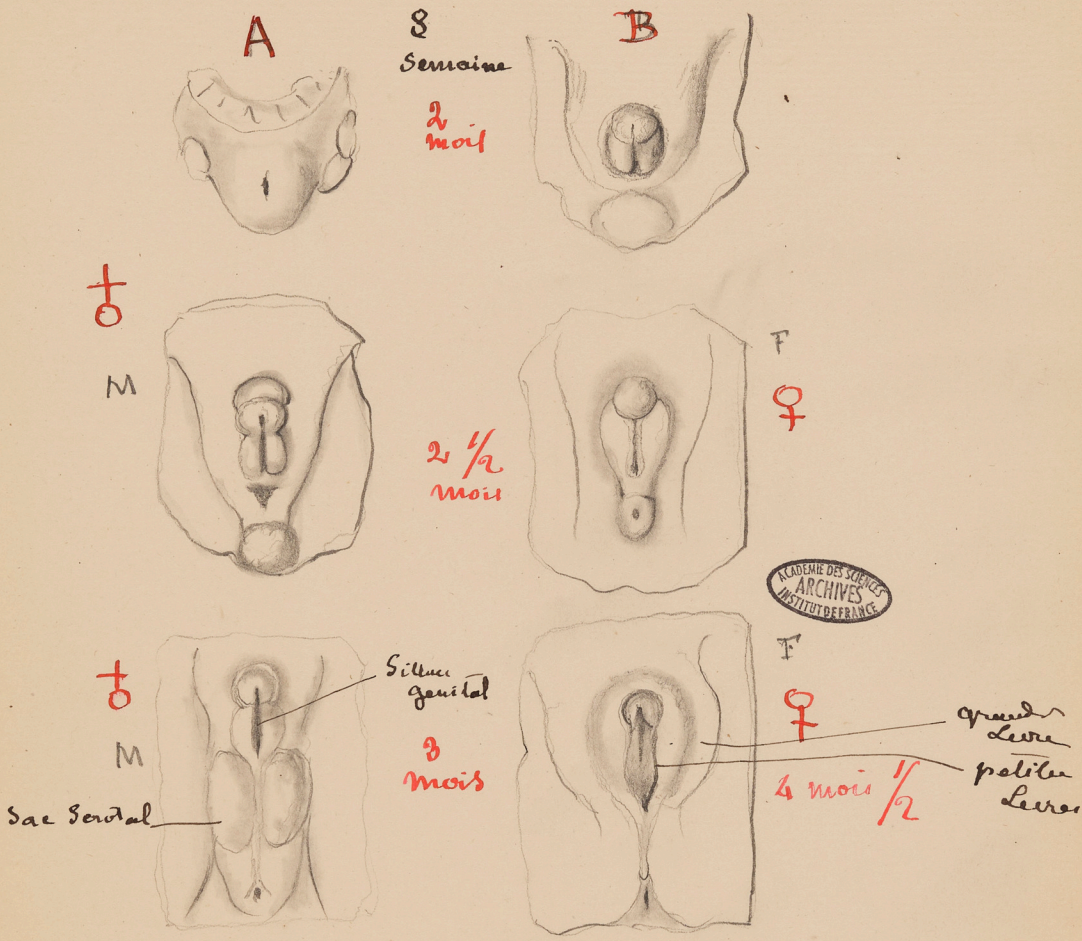 A
8
Semaine
B
2
mois
♂
M
F
♀
2 1/2
mois
ACADEMIE DES SCIENCES
ARCHIVES
INSTITUT DE FRANCE
♂
M
Sillon
genital
F
♀
3
mois
grandes
Levre
petites
Levres
4 mois 1/2
Sac Scrotal